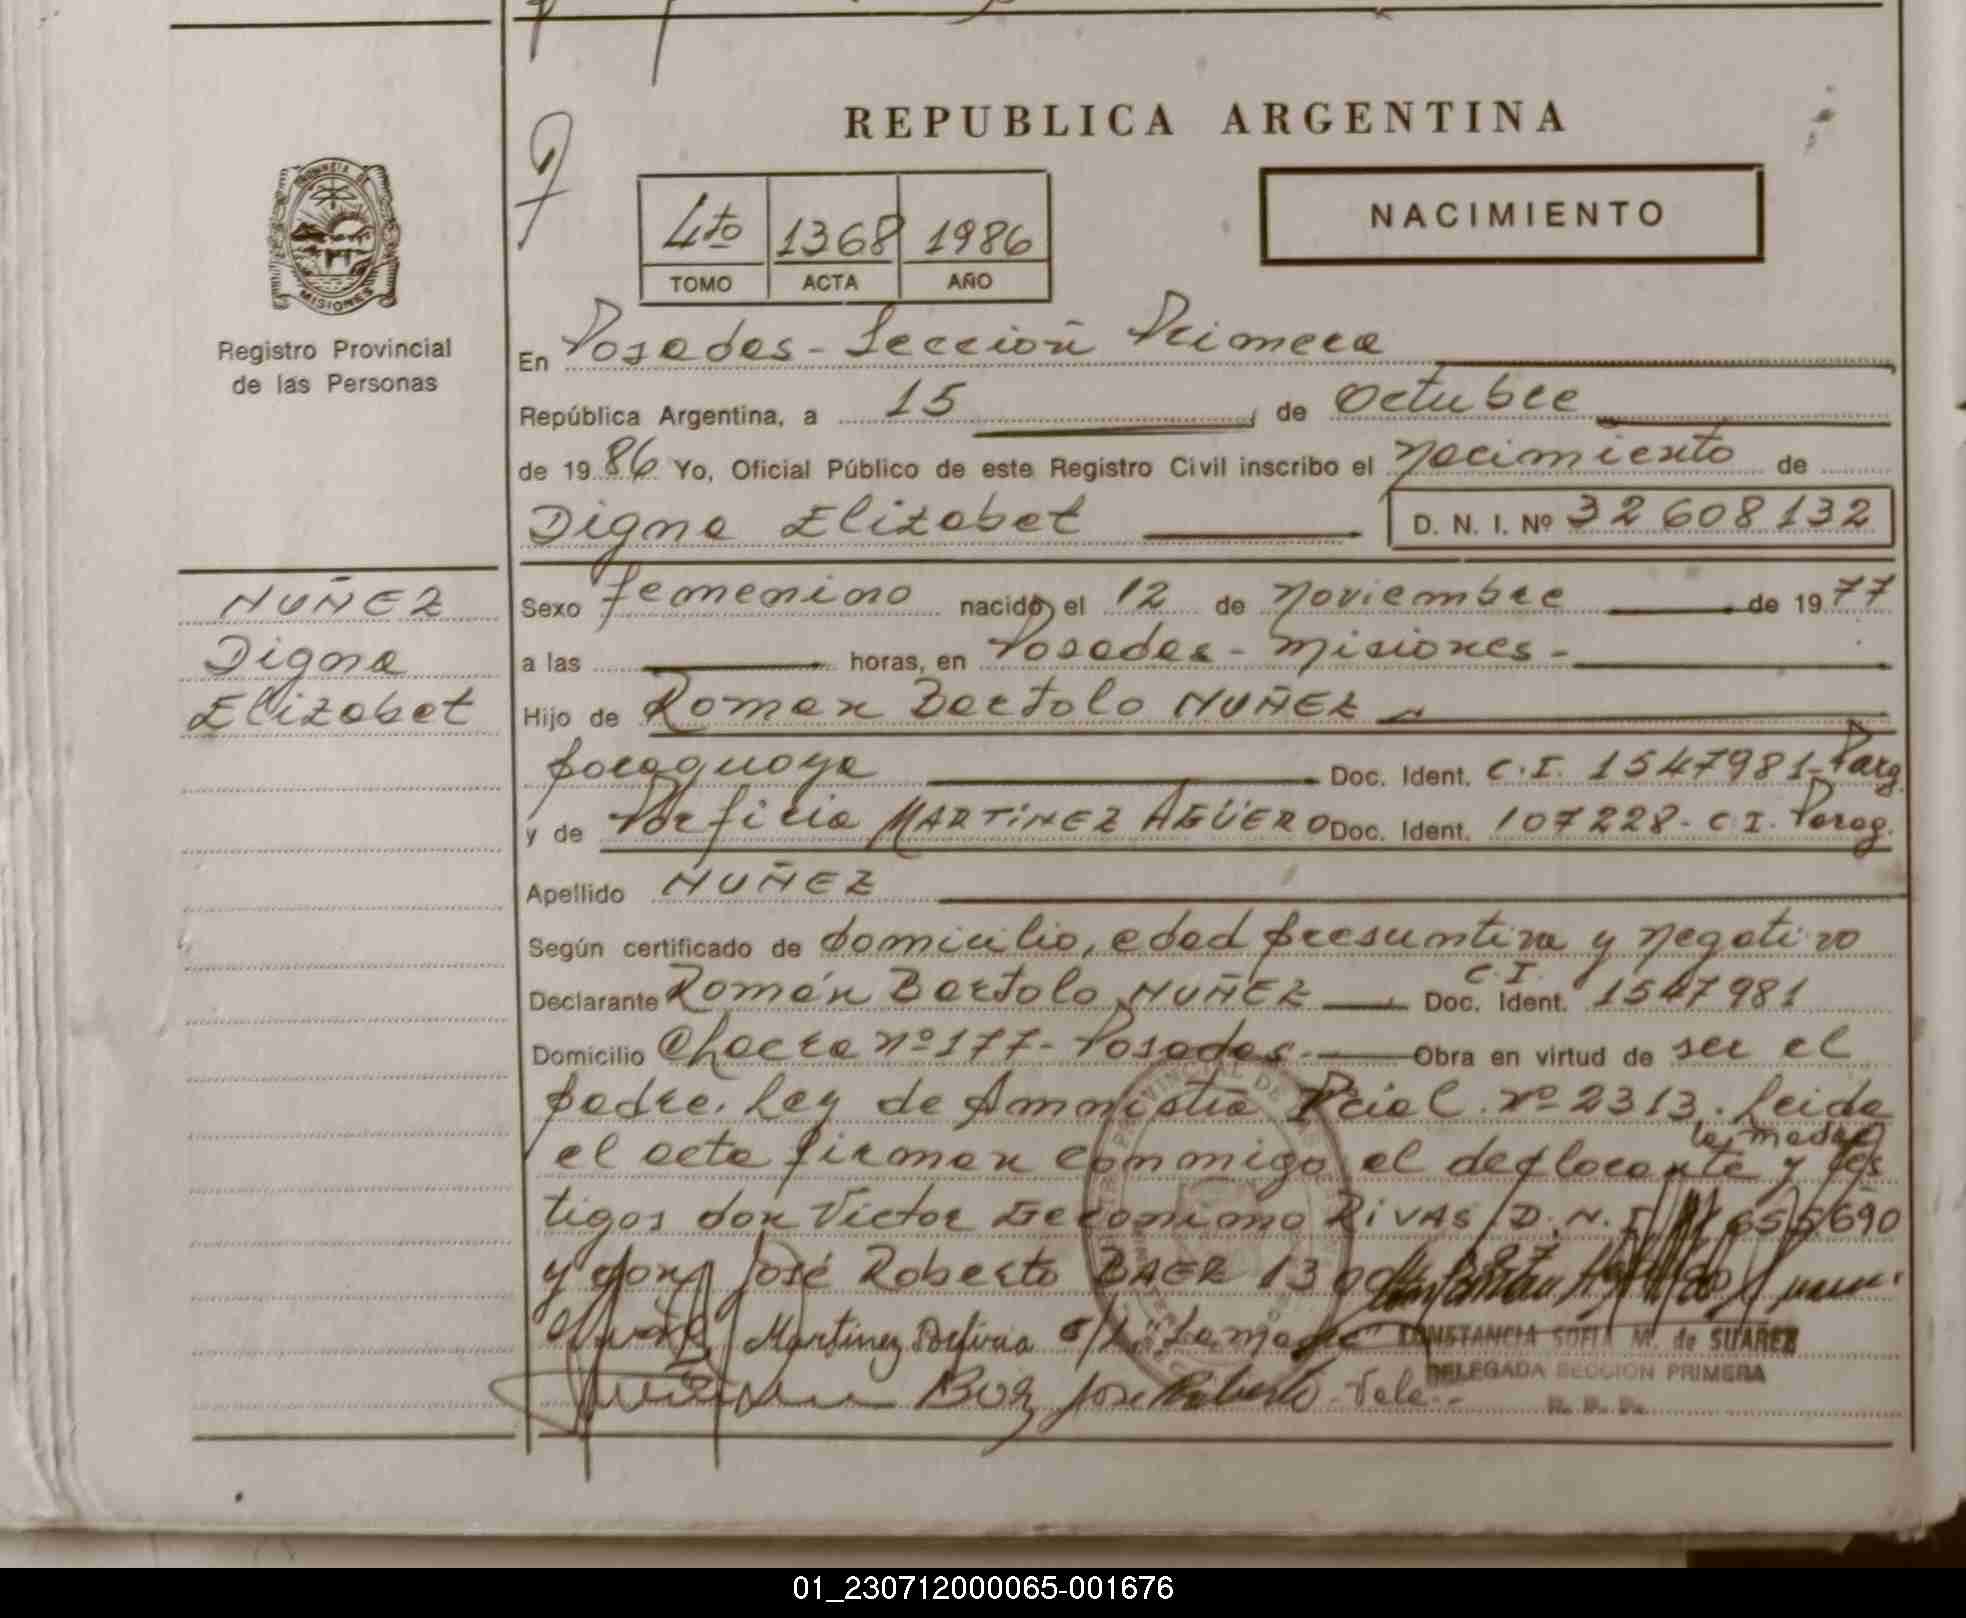 REPUBLICA ARGENTINA
NACIMIENTO
4to 1368 1986
TOMO ACTA AÑO
PROVINCIA DE
MISIONES
Registro Provincial
de las Personas
En Posadas - Sección Primera
República Argentina, a 15 de Octubre
de 1986 Yo, Oficial Público de este Registro Civil inscribo el nacimiento de
Digna Elizabet D. N. I. Nº 32 608 132
NUÑEZ
Digna
Elizabet
Sexo femenino nacido el 12 de noviembre de 1977
a las horas, en Posadas - Misiones -
Hijo de Roman Bartolo NUÑEZ
paraguaya Doc. Ident. C.I. 1547981 - Parg.
y de Porfiria MARTINEZ AGÜERO Doc. Ident. 107228 - C I. Parag.
Apellido NUÑEZ
Según certificado de domicilio, edad presuntiva y negativo
Declarante Román Bartolo NUÑEZ Doc. Ident. C.I. 1547981
Domicilio Chacra nº 177 - Posadas - Obra en virtud de ser el
padre. Ley de Ammistia Pcial. nº 2313. Leida
el acta firman conmigo el declarante la madre y tes
tigos don Victor Geronimo RIVAS D.N.I. 655690
y don José Roberto BAER 13
Martinez Porfiria "La madre"
CONSTANCIA SOFIA M. de SUAREZ
DELEGADA SECCION PRIMERA
R. P. P.
Jose Roberto - Vale -
01_230712000065-001676